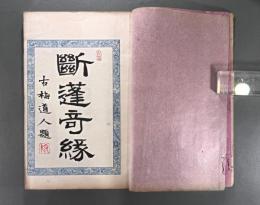 斷蓬奇緣
古梅道人題